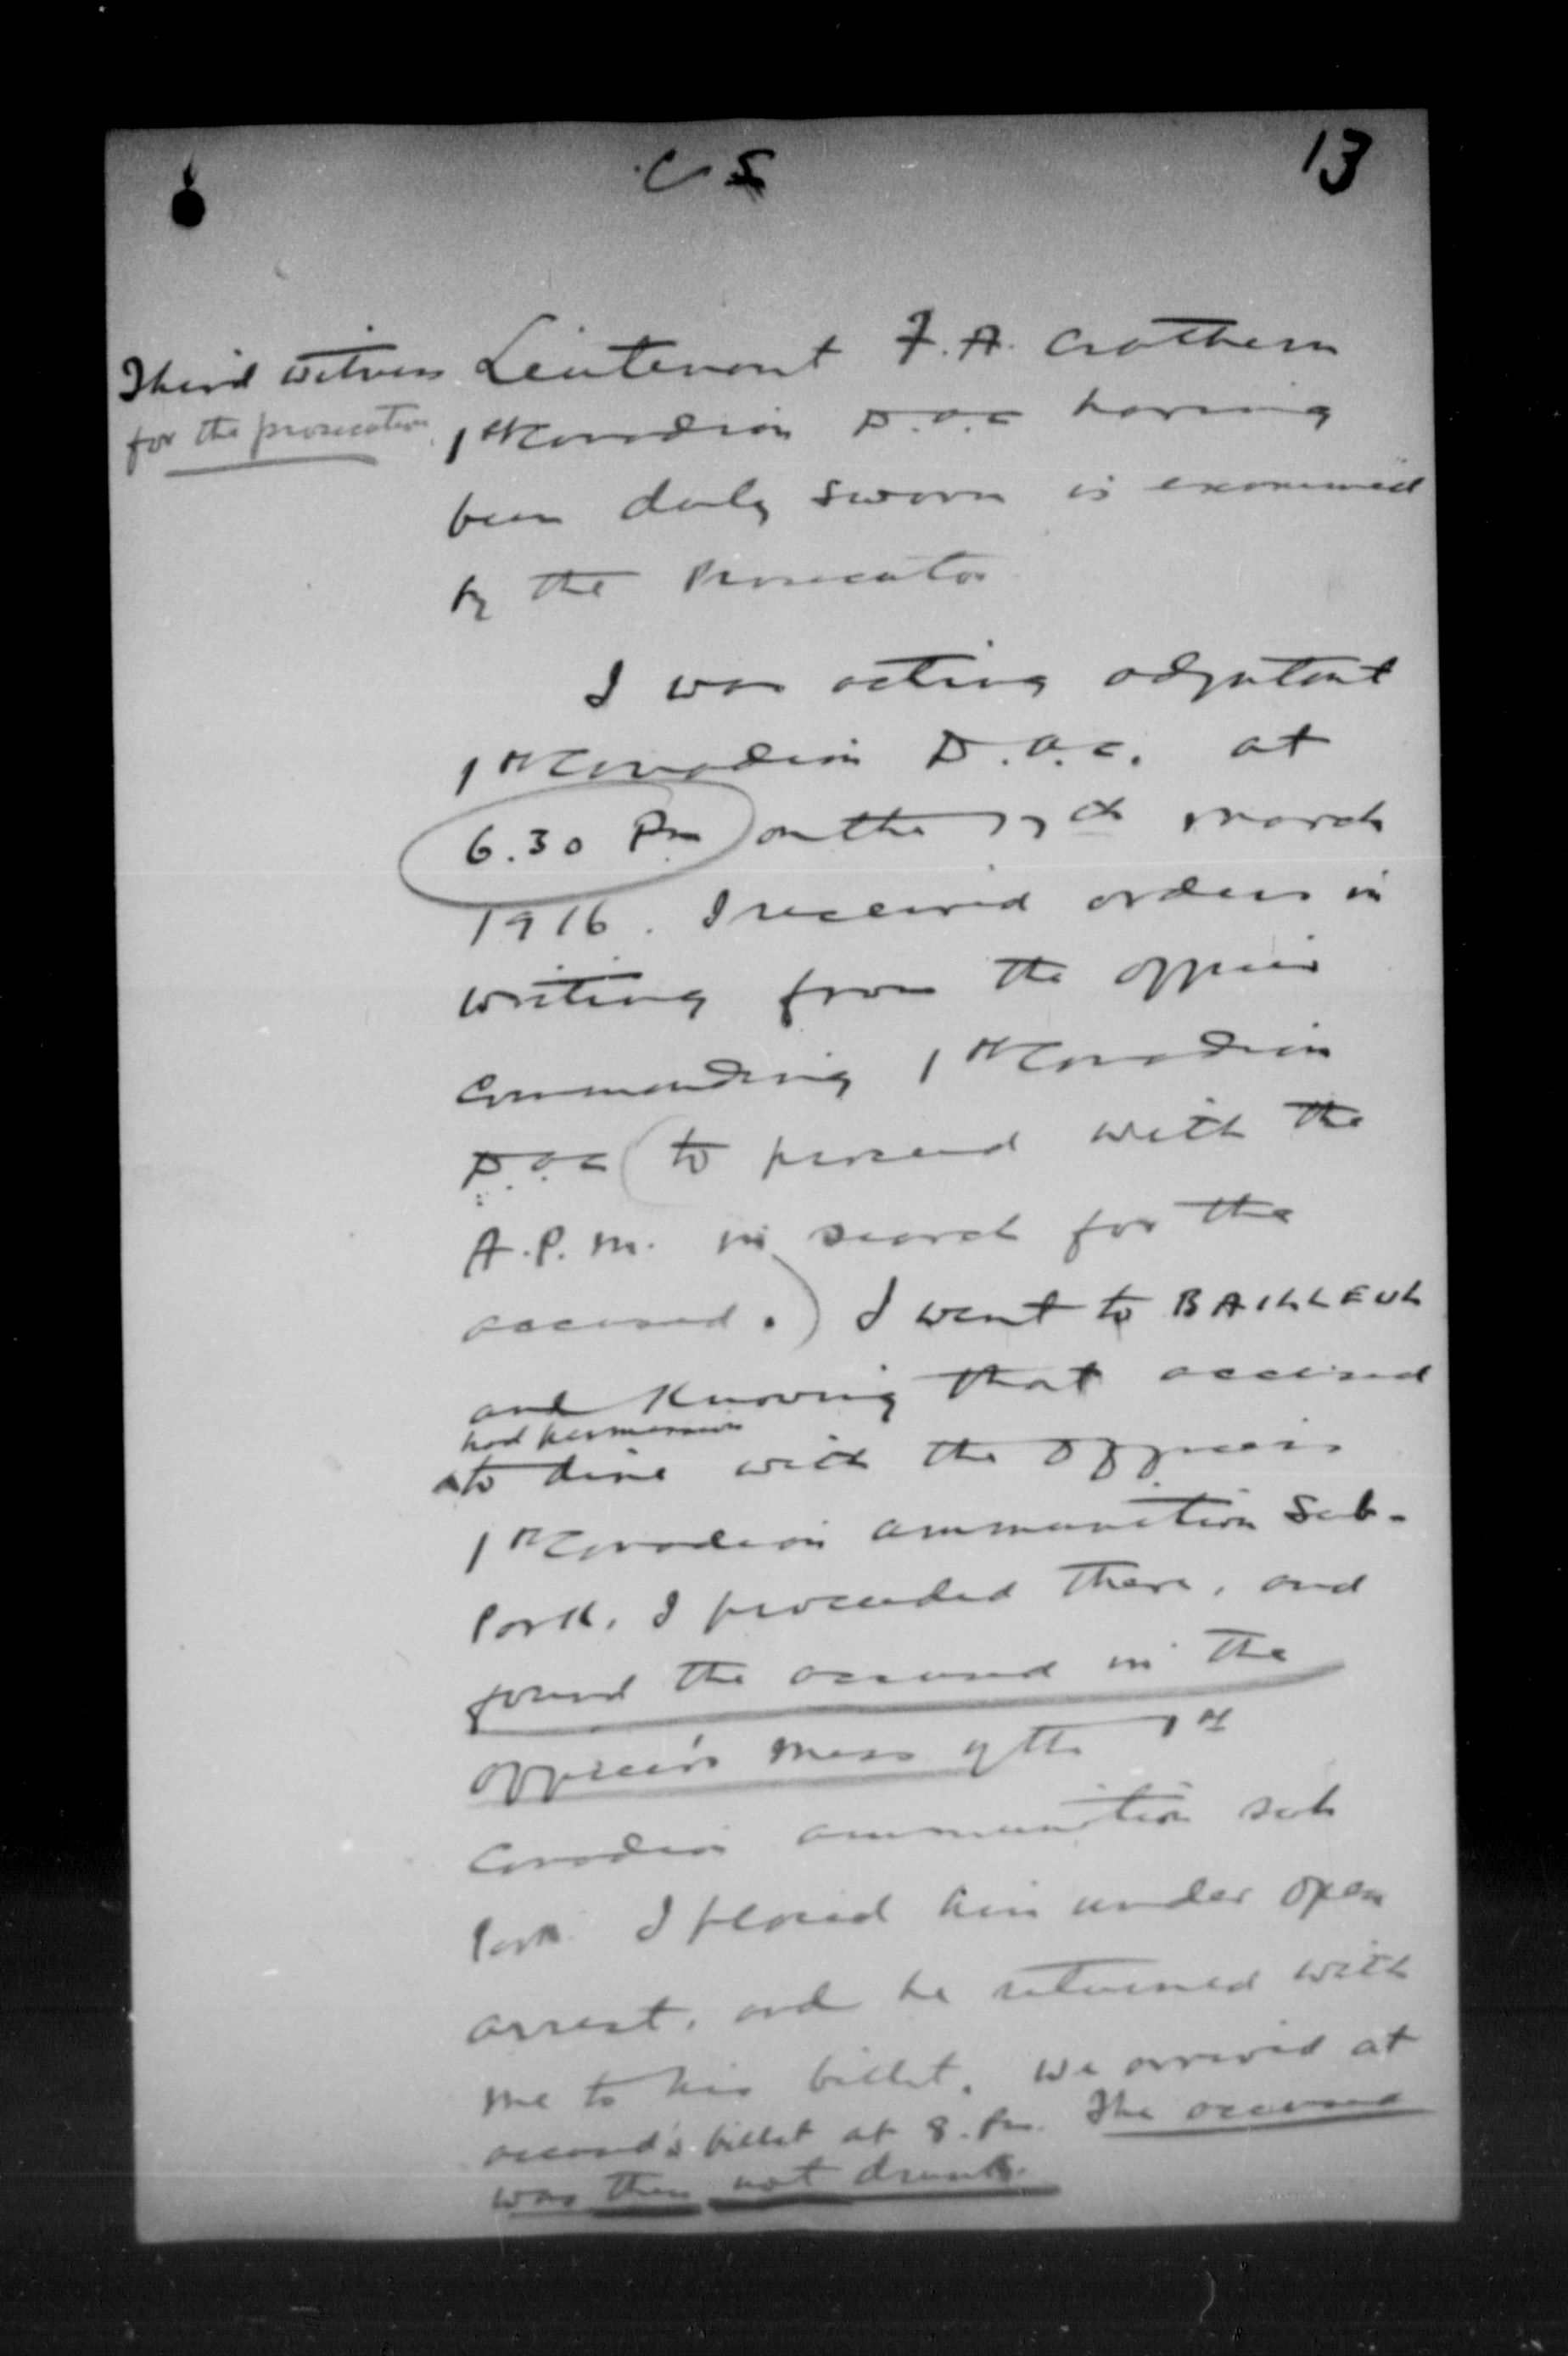 C S
13
Third witness
for the prosecution
Lieutenant F. A. Crathern
1st Canadian D.A.C having
been duly sworn is examined
by the Prosecutor
I was acting adjutant
1st Canadian D.A.C. at
6.30 Pm on the March
1916. I received orders in
writing from the officer
commanding 1st Canadian
D.A.C (to proceed with the
A.P.M. in search for the
accused.) I went to BAILLEUL
and knowing that accused
had permission
to dine with the officers
1st Canadian ammunition Sub-
Park, I proceeded there, and
found the accused in the
officer's mess of the 1st
Canadian ammunition sub
Park I placed him under open
arrest, and he returned with
me to his billet. We arrived at
accused's billet at 8. Pm. The accused
was then not drunk.